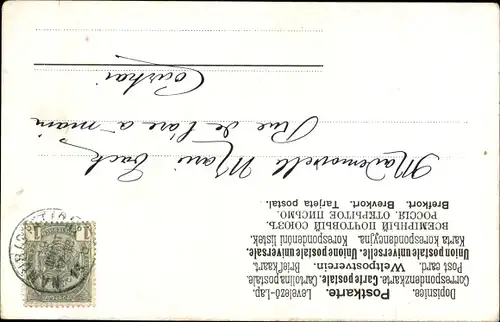 Dopisnice. Postkarte. Levelező-Lap.
Correspondenzkarte. Carte postale. Cartolina postale.
Post card. Weltpostverein. Briefkaart.
Union postale universelle. Unione postale universale.
Karta korespondencyjna. Korespondenční listek.
ВСЕМІРНЫЙ ПОЧТОВЫЙ СОЮЗЪ.
РОССІЯ. ОТКРЫТОЕ ПИСЬМО.
Brefkort. Brevkort. Tarjeta postal.
Mademoiselle Marie
Rue de l'arc à main
Courtrai
1 1